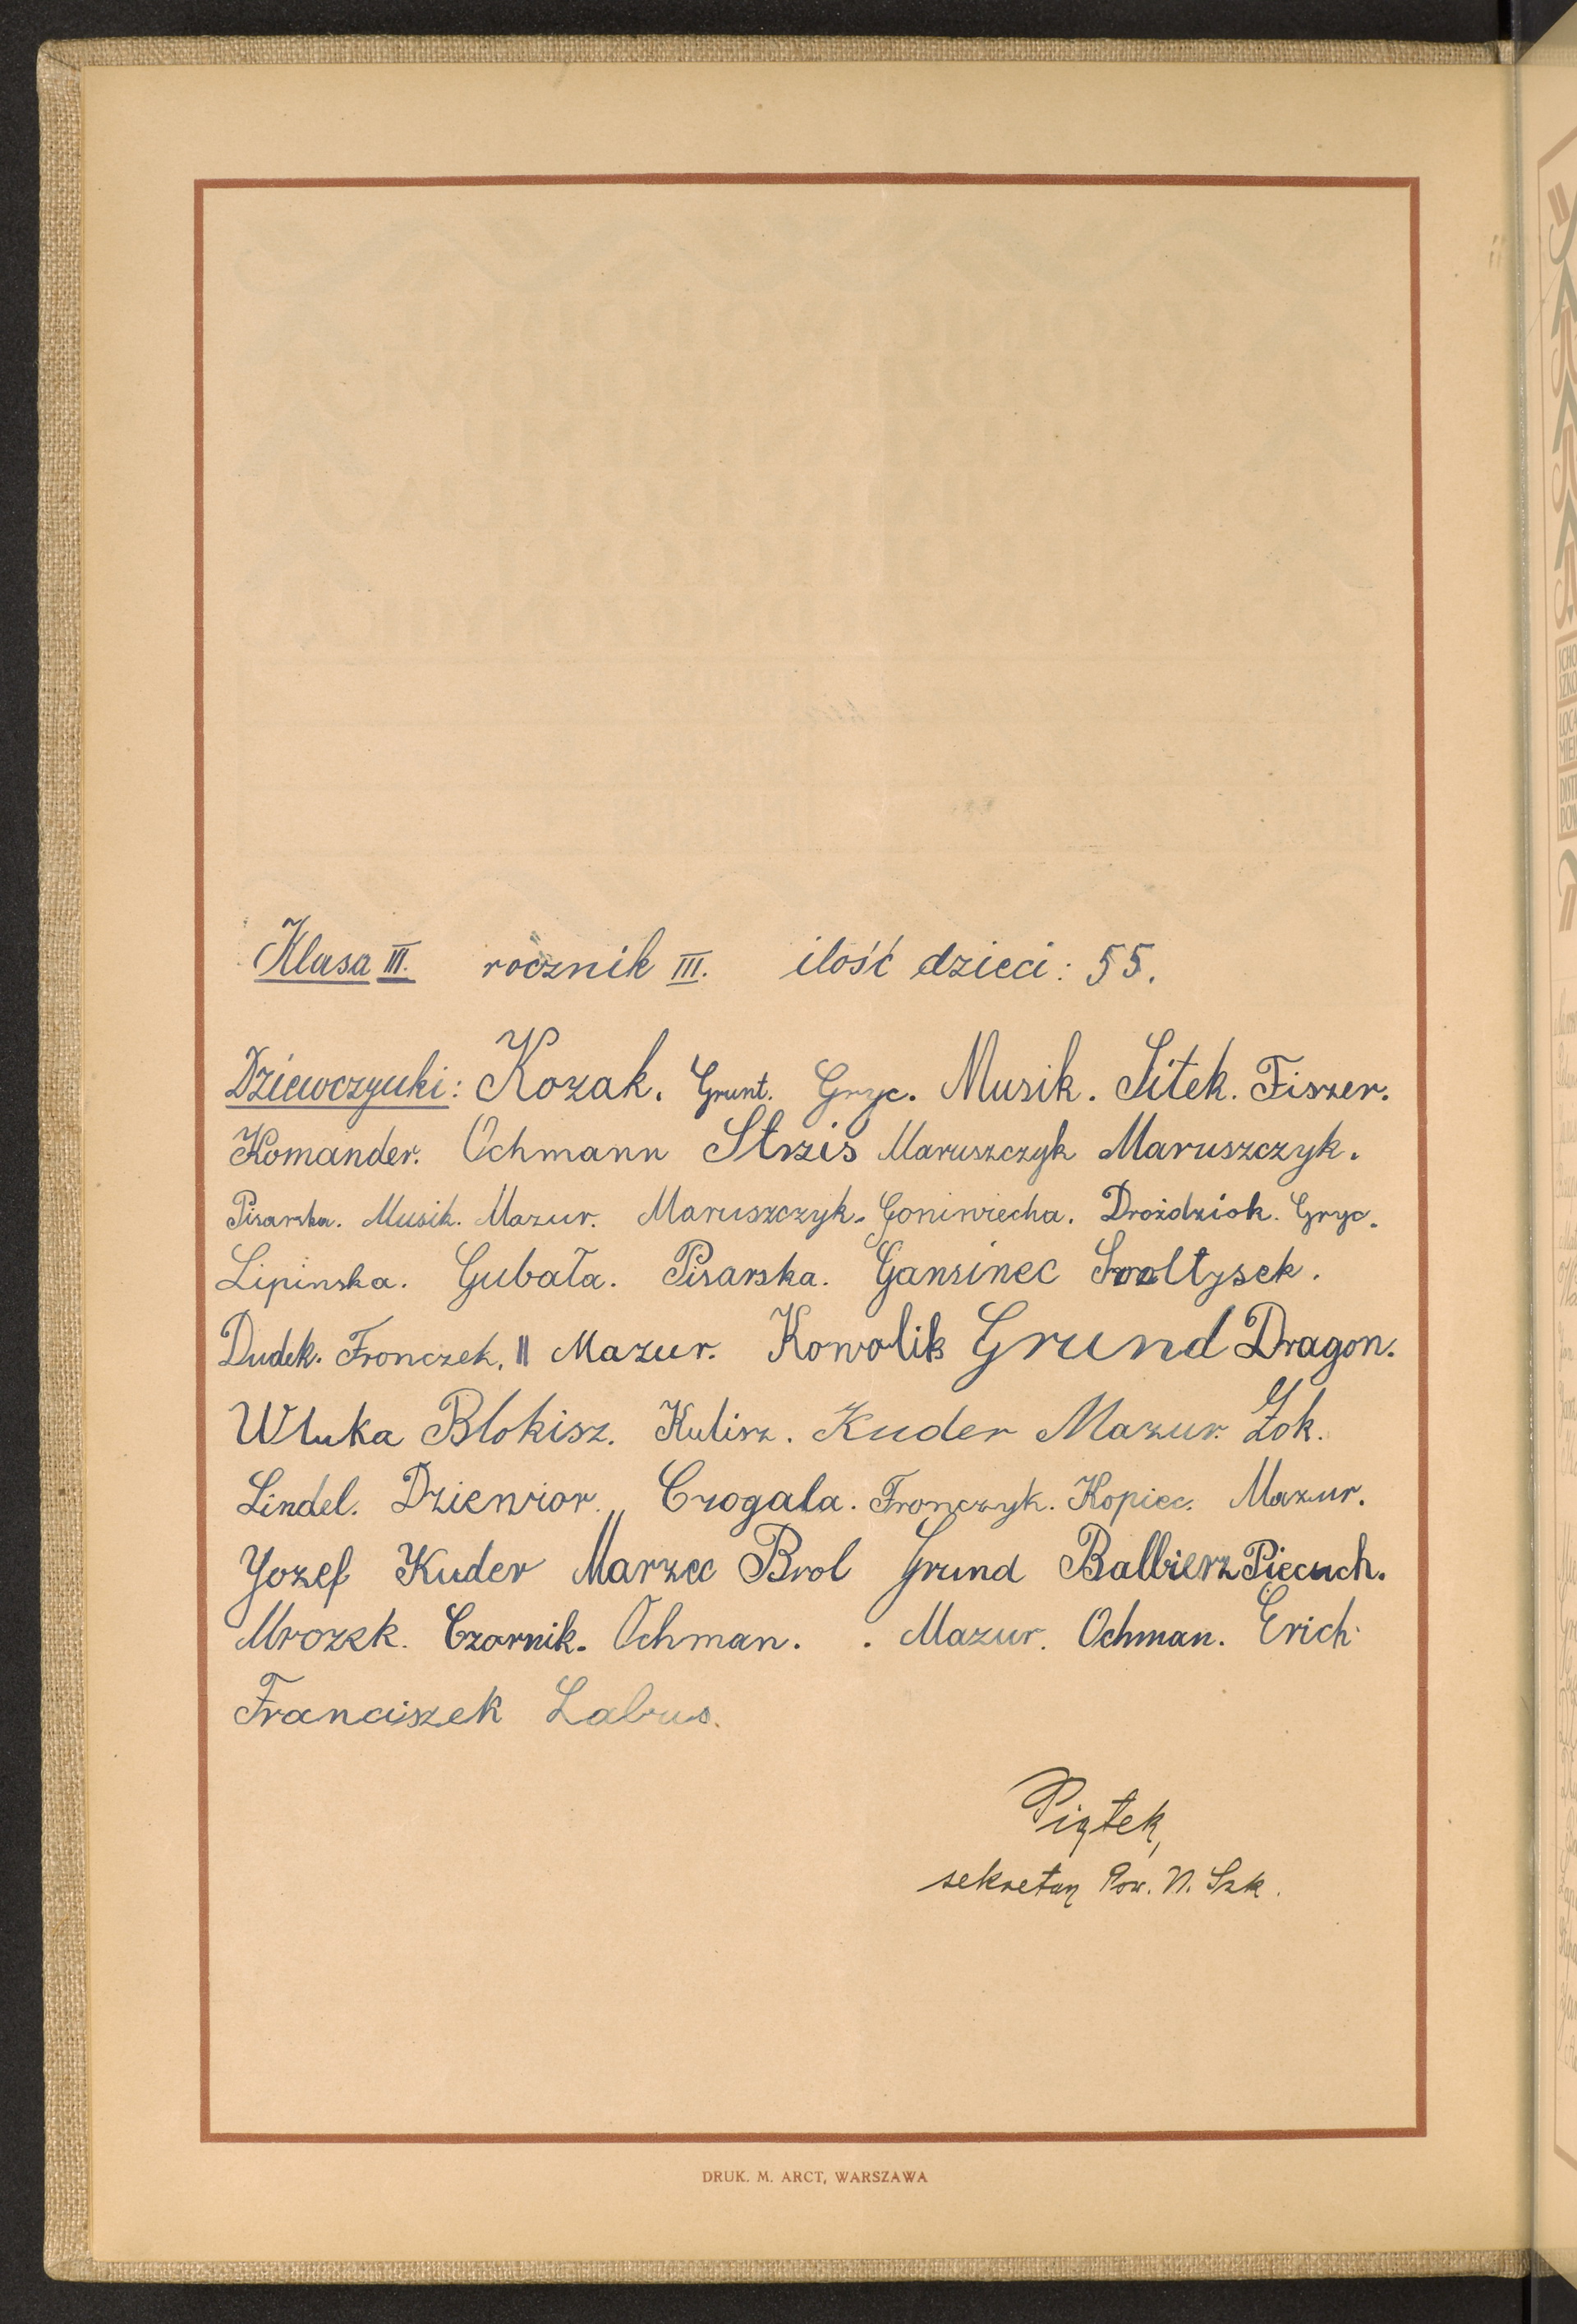 Klasa III. rocznik III. ilość dzieci: 55.
Dziewczynki: Kozak. Grunt. Gryc. Musik. Sitek. Fiszer.
Komander. Ochmann Strzis Maruszczyk Maruszczyk.
Pisarska. Musik. Mazur. Maruszczyk. Goniwiecha. Droździok. Gryc.
Lipinska. Gubała. Pisarska. Gansinec
Dudek. Fronczek. || Mazur. Kowolik Grund Dragon.
Wluka Blokisz. Kulisz. Kuder Mazur. Żok.
Lindel. Dziewior. Czogala. Fronczyk. Kopiec. Mazur.
Yozef Kuder Marzec Brol Grund Balbierz Piecuch.
Mrozek. Czornik. Ochman. . Mazur. Ochman. Erich
Franciszek Labus.
Piątek,
sekretarz Pow. N. Szk.
DRUK. M. ARCT, WARSZAWA